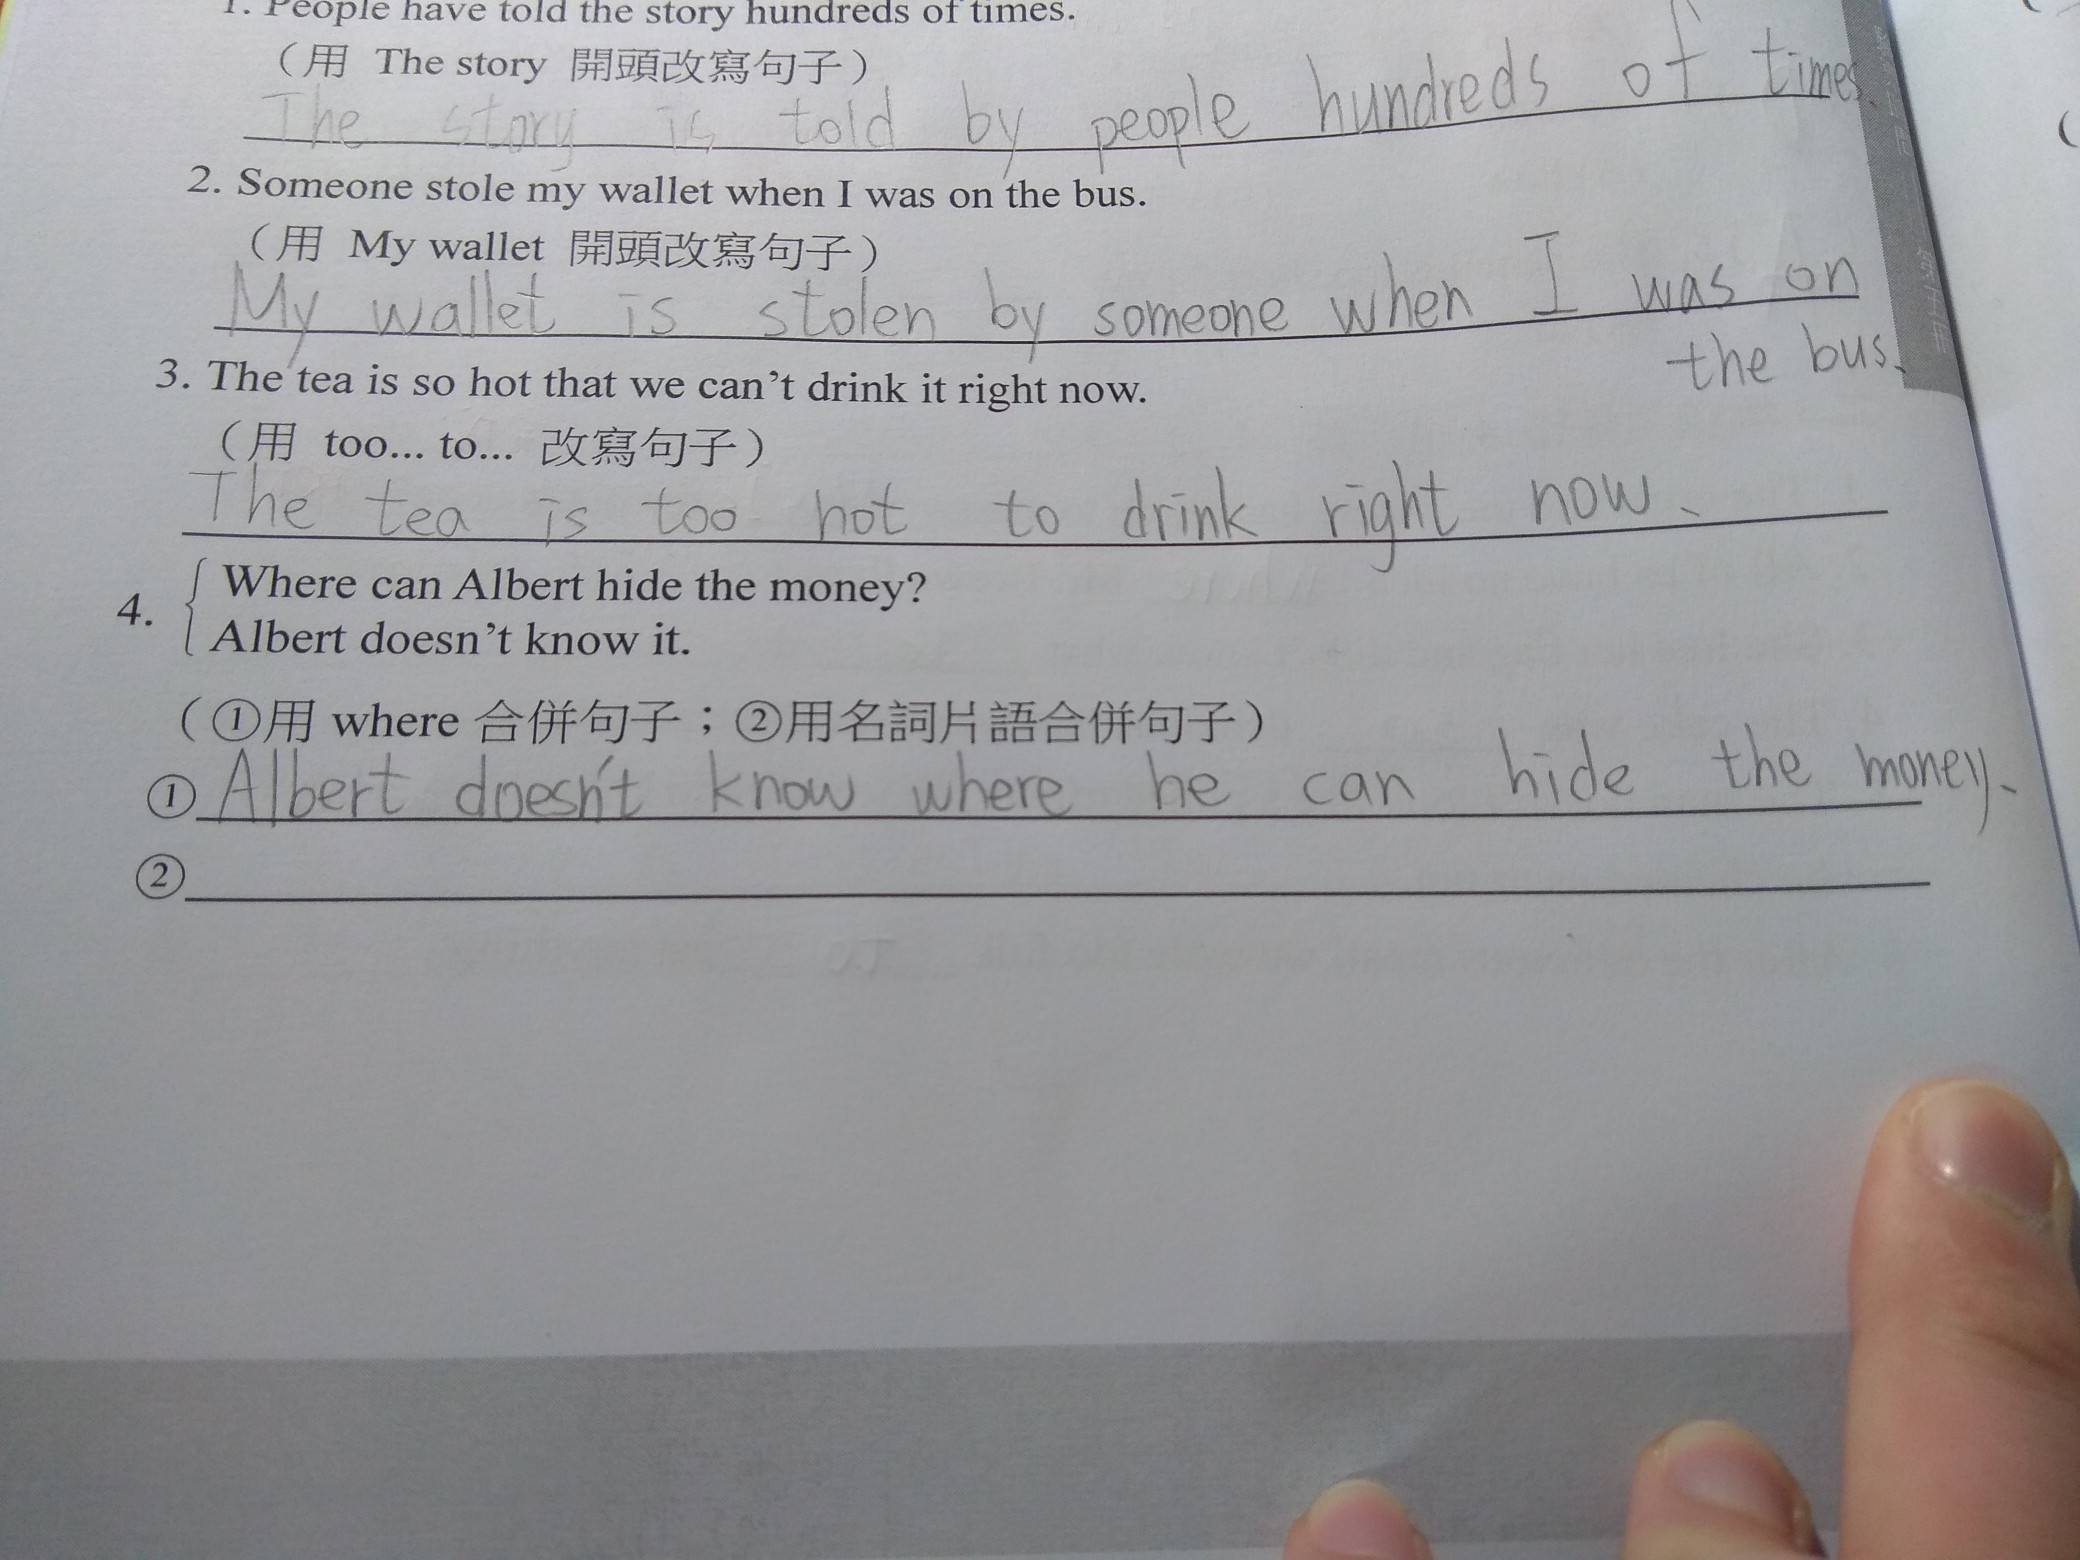 1. People have told the story hundreds of times.
（用 The story 開頭改寫句子）
The story is told by people hundreds of times.
2. Someone stole my wallet when I was on the bus.
（用 My wallet 開頭改寫句子）
My wallet is stolen by someone when I was on
the bus.
3. The tea is so hot that we can't drink it right now.
（用 too... to... 改寫句子）
The tea is too hot to drink right now.
4. Where can Albert hide the money?
Albert doesn't know it.
（①用 where 合併句子；②用名詞片語合併句子）
① Albert doesn't know where he can hide the money.
②